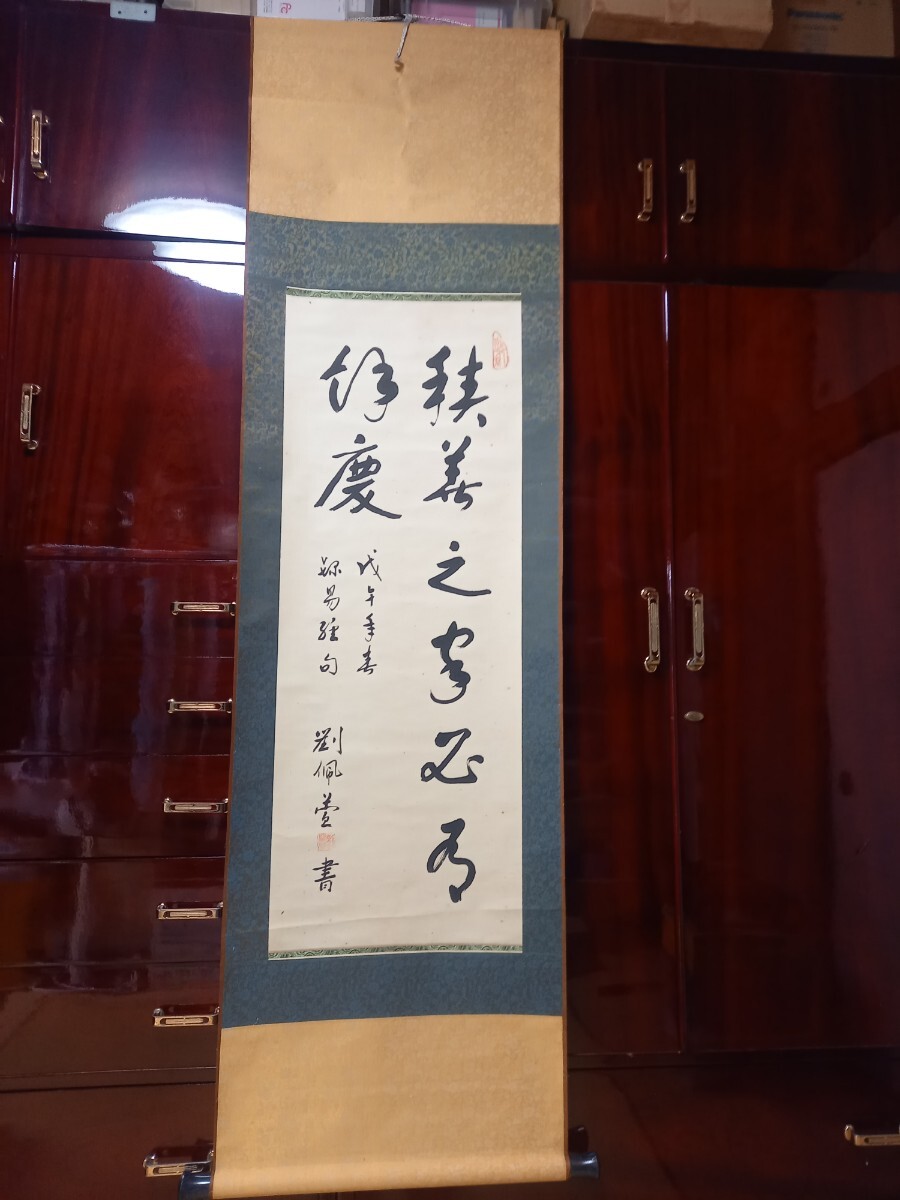 積善之家必有
餘慶
戊午年春
錄易經句
劉佩萱書
Panasonic